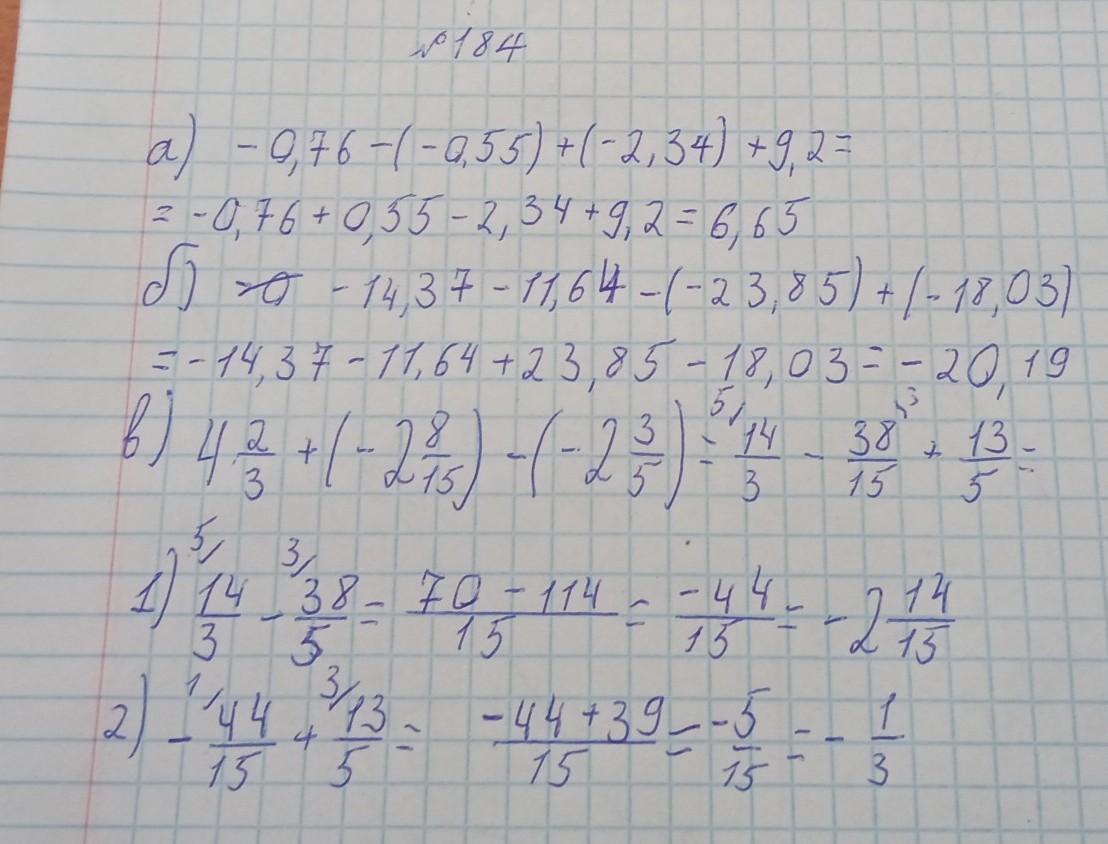 №184
а) -0,76-(-0,55)+(-2,34)+9,2=
=-0,76+0,55-2,34+9,2=6,65
б) -14,37-11,64-(-23,85)+(-18,03)
=-14,37-11,64+23,85-18,03=-20,19
в) 4 2/3 + (-2 8/15) - (-2 3/5) = 5/ 14/3 - 38/15 + 3/ 13/5 =
1) 5/ 14/3 - 3/ 38/5 = 70-114/15 = -44/15 = -2 14/15
2) - 1/ 44/15 + 3/ 13/5 = -44+39/15 = -5/15 = - 1/3